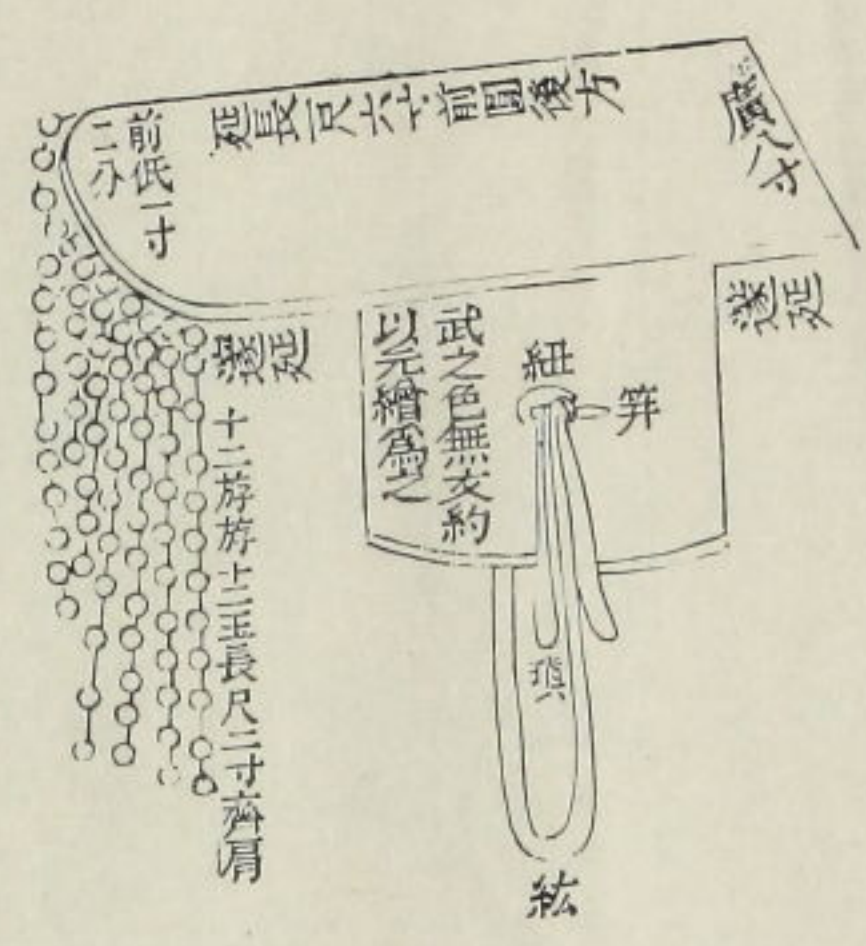 廣八寸
延長一尺六寸前圓後方
前低一寸
二分
邃延
紐
笄
武之色無文約
以元繒爲之
邃延
十二斿斿十二玉長尺二寸齊肩
瑱
紘